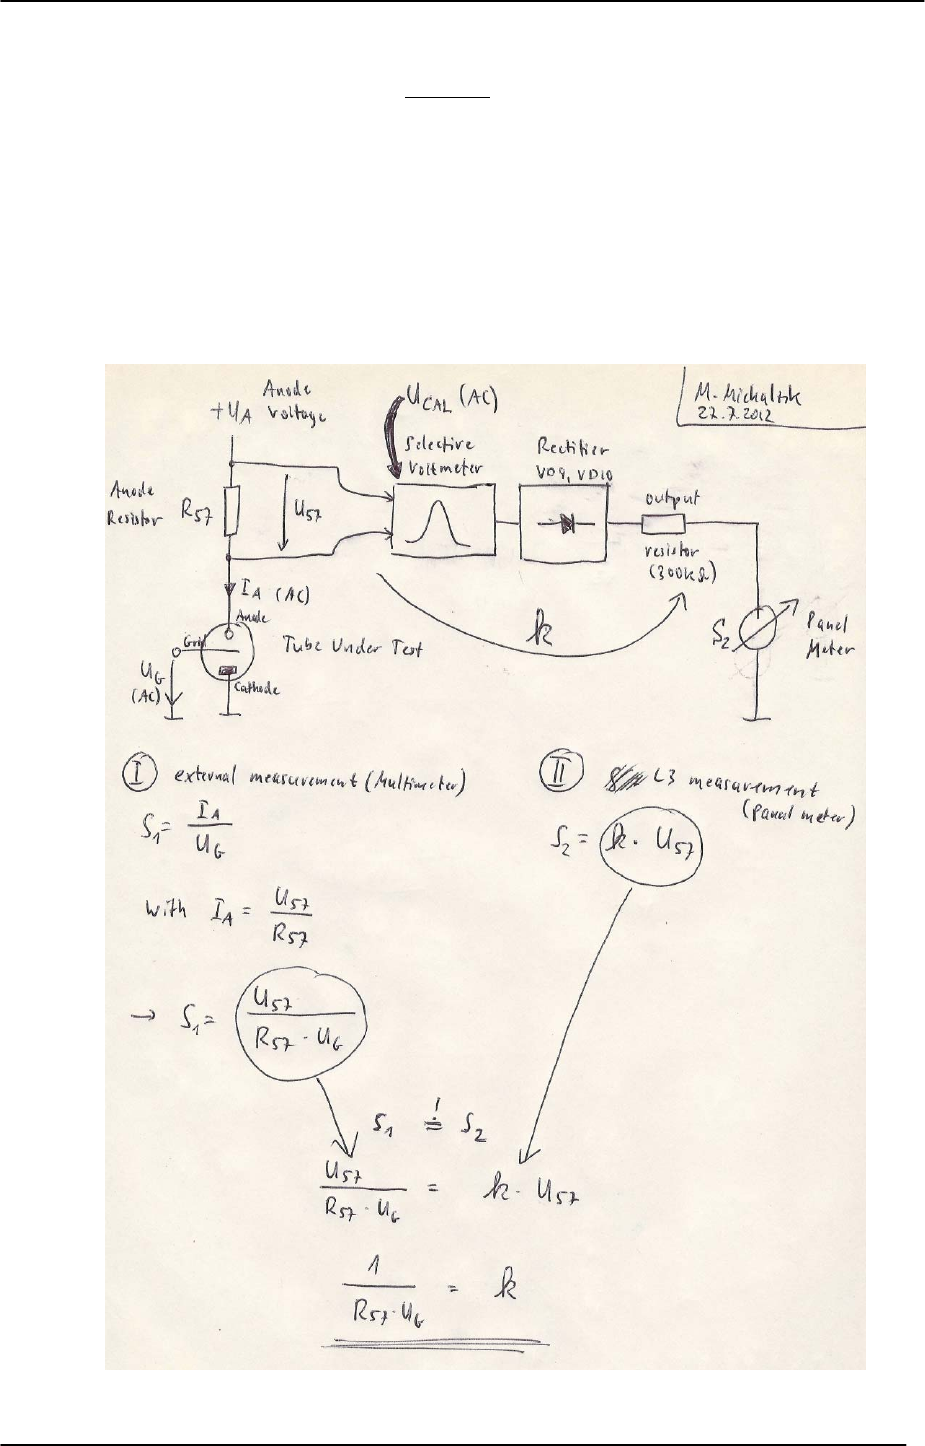 M. Michaltsk
27.7.2012
Anode
+UA Voltage
UCAL (AC)
Selective
Voltmeter
Rectifier
VD9, VD10
output
resistor
(300kΩ)
Anode
Resistor
R57
U57
IA (AC)
Anode
Grid
Tube Under Test
UG
(AC)
Cathode
k
S2
Panel
Meter
I external measurement (Multimeter)
S1 = IA / UG
with IA = U57 / R57
→ S1 = U57 / R57 · UG
II L3 measurement
(Panel meter)
S2 = k · U57
S1 ≟ S2
U57 / R57 · UG = k · U57
1 / R57 · UG = k